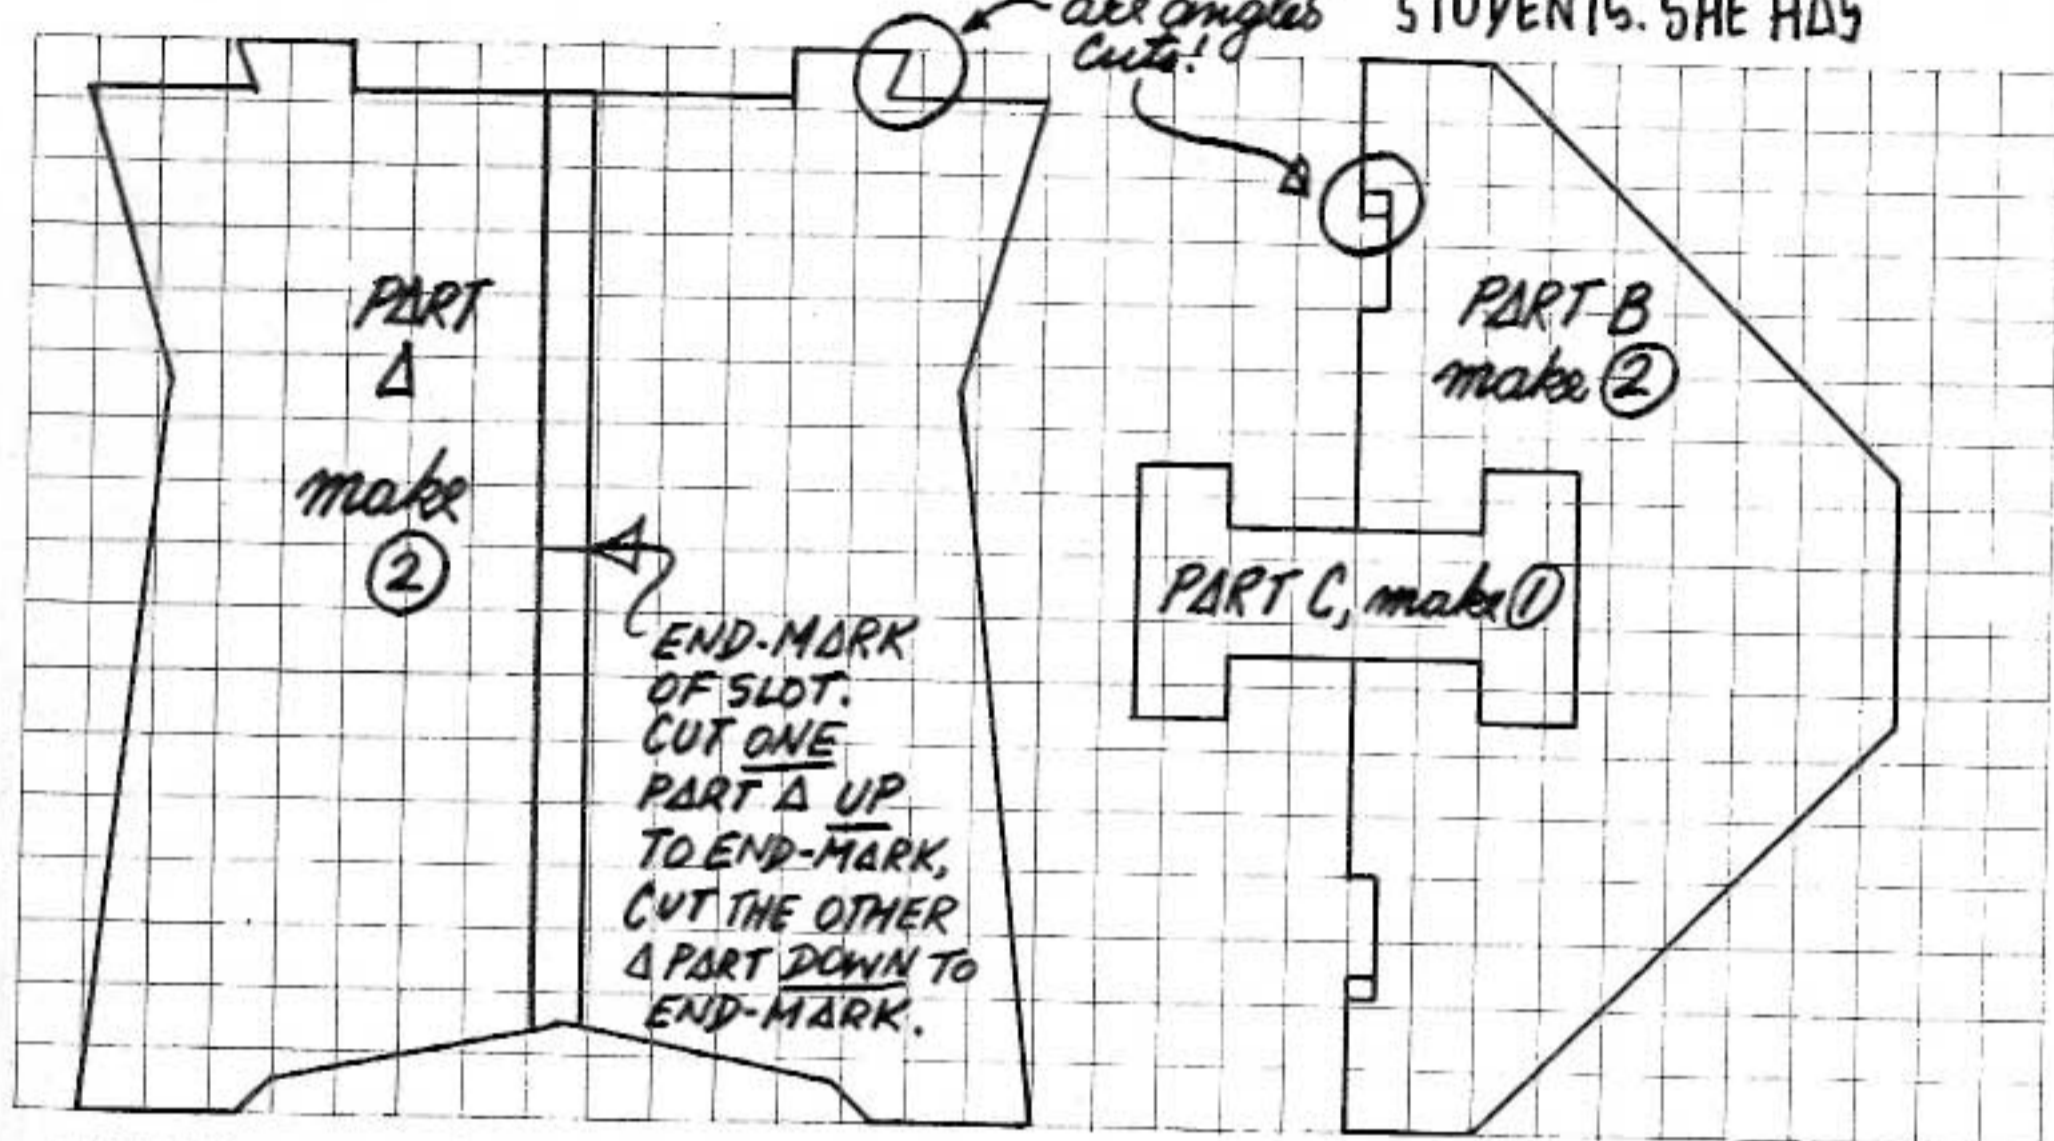 are angles
cuts!
STUDENTS. SHE HAS
PART
A
make
2
END-MARK
OF SLOT.
CUT ONE
PART A UP
TO END-MARK,
CUT THE OTHER
A PART DOWN TO
END-MARK.
PART B
make 2
PART C, make 1